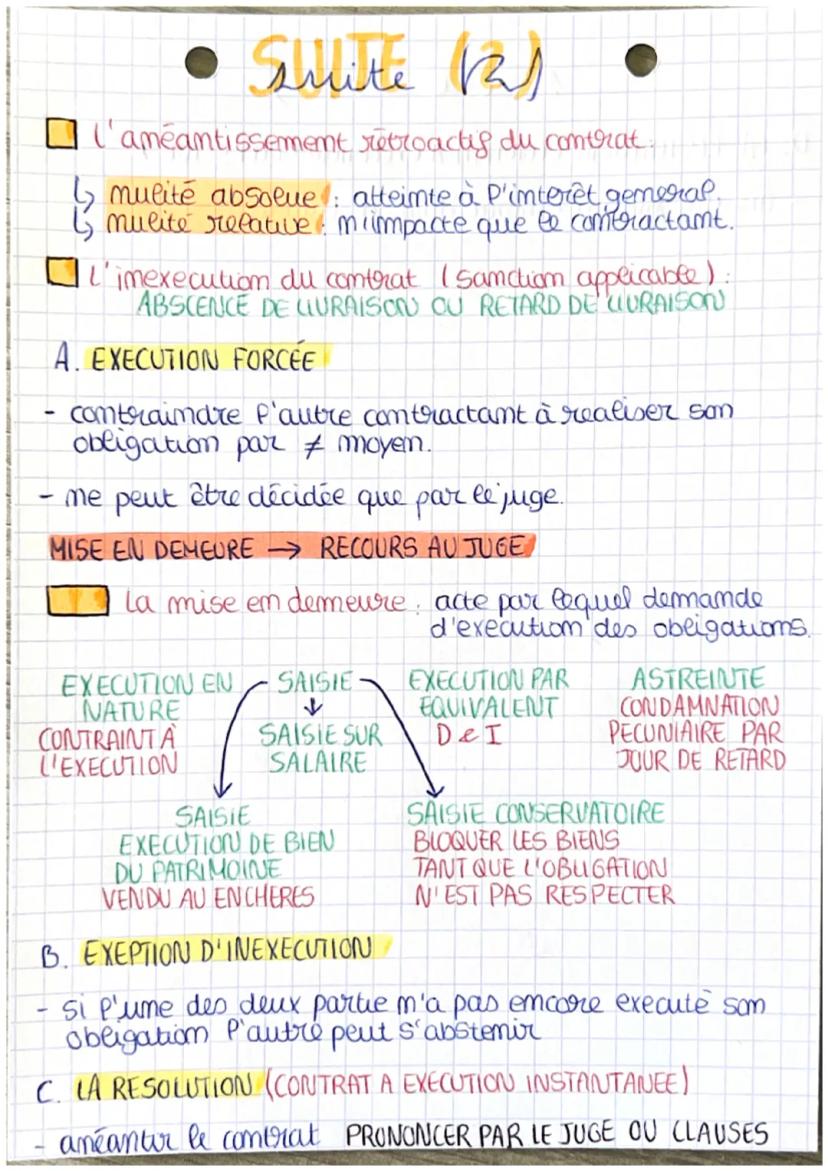 SUITE (2)
suite (2)
L'anéantissement rétroactif du contrat.
↳ nullité absolue : atteinte à l'interêt general.
↳ nullité relative : n'impacte que le contractant.
L'inexecution du contrat (sanction applicable) :
ABSCENCE DE LIVRAISON OU RETARD DE LIVRAISON
A. EXECUTION FORCÉE
- contraindre l'autre contractant à realiser son
obligation par ≠ moyen.
- ne peut être décidée que par le juge.
MISE EN DEMEURE → RECOURS AU JUGE
La mise en demeure : acte par lequel demande
d'execution des obligations.
EXECUTION EN NATURE
CONTRAINT À L'EXECUTION
SAISIE
SAISIE SUR SALAIRE
EXECUTION PAR EQUIVALENT
D & I
ASTREINTE
CONDAMNATION
PECUNIAIRE PAR
JOUR DE RETARD
SAISIE
EXECUTION DE BIEN
DU PATRIMOINE
VENDU AU ENCHERES
SAISIE CONSERVATOIRE
BLOQUER LES BIENS
TANT QUE L'OBLIGATION
N'EST PAS RESPECTER
B. EXEPTION D'INEXECUTION
- si l'une des deux partie n'a pas encore executé son
obligation l'autre peut s'abstenir
C. LA RESOLUTION (CONTRAT A EXECUTION INSTANTANEE)
- anéantir le contrat PRONONCER PAR LE JUGE OU CLAUSES